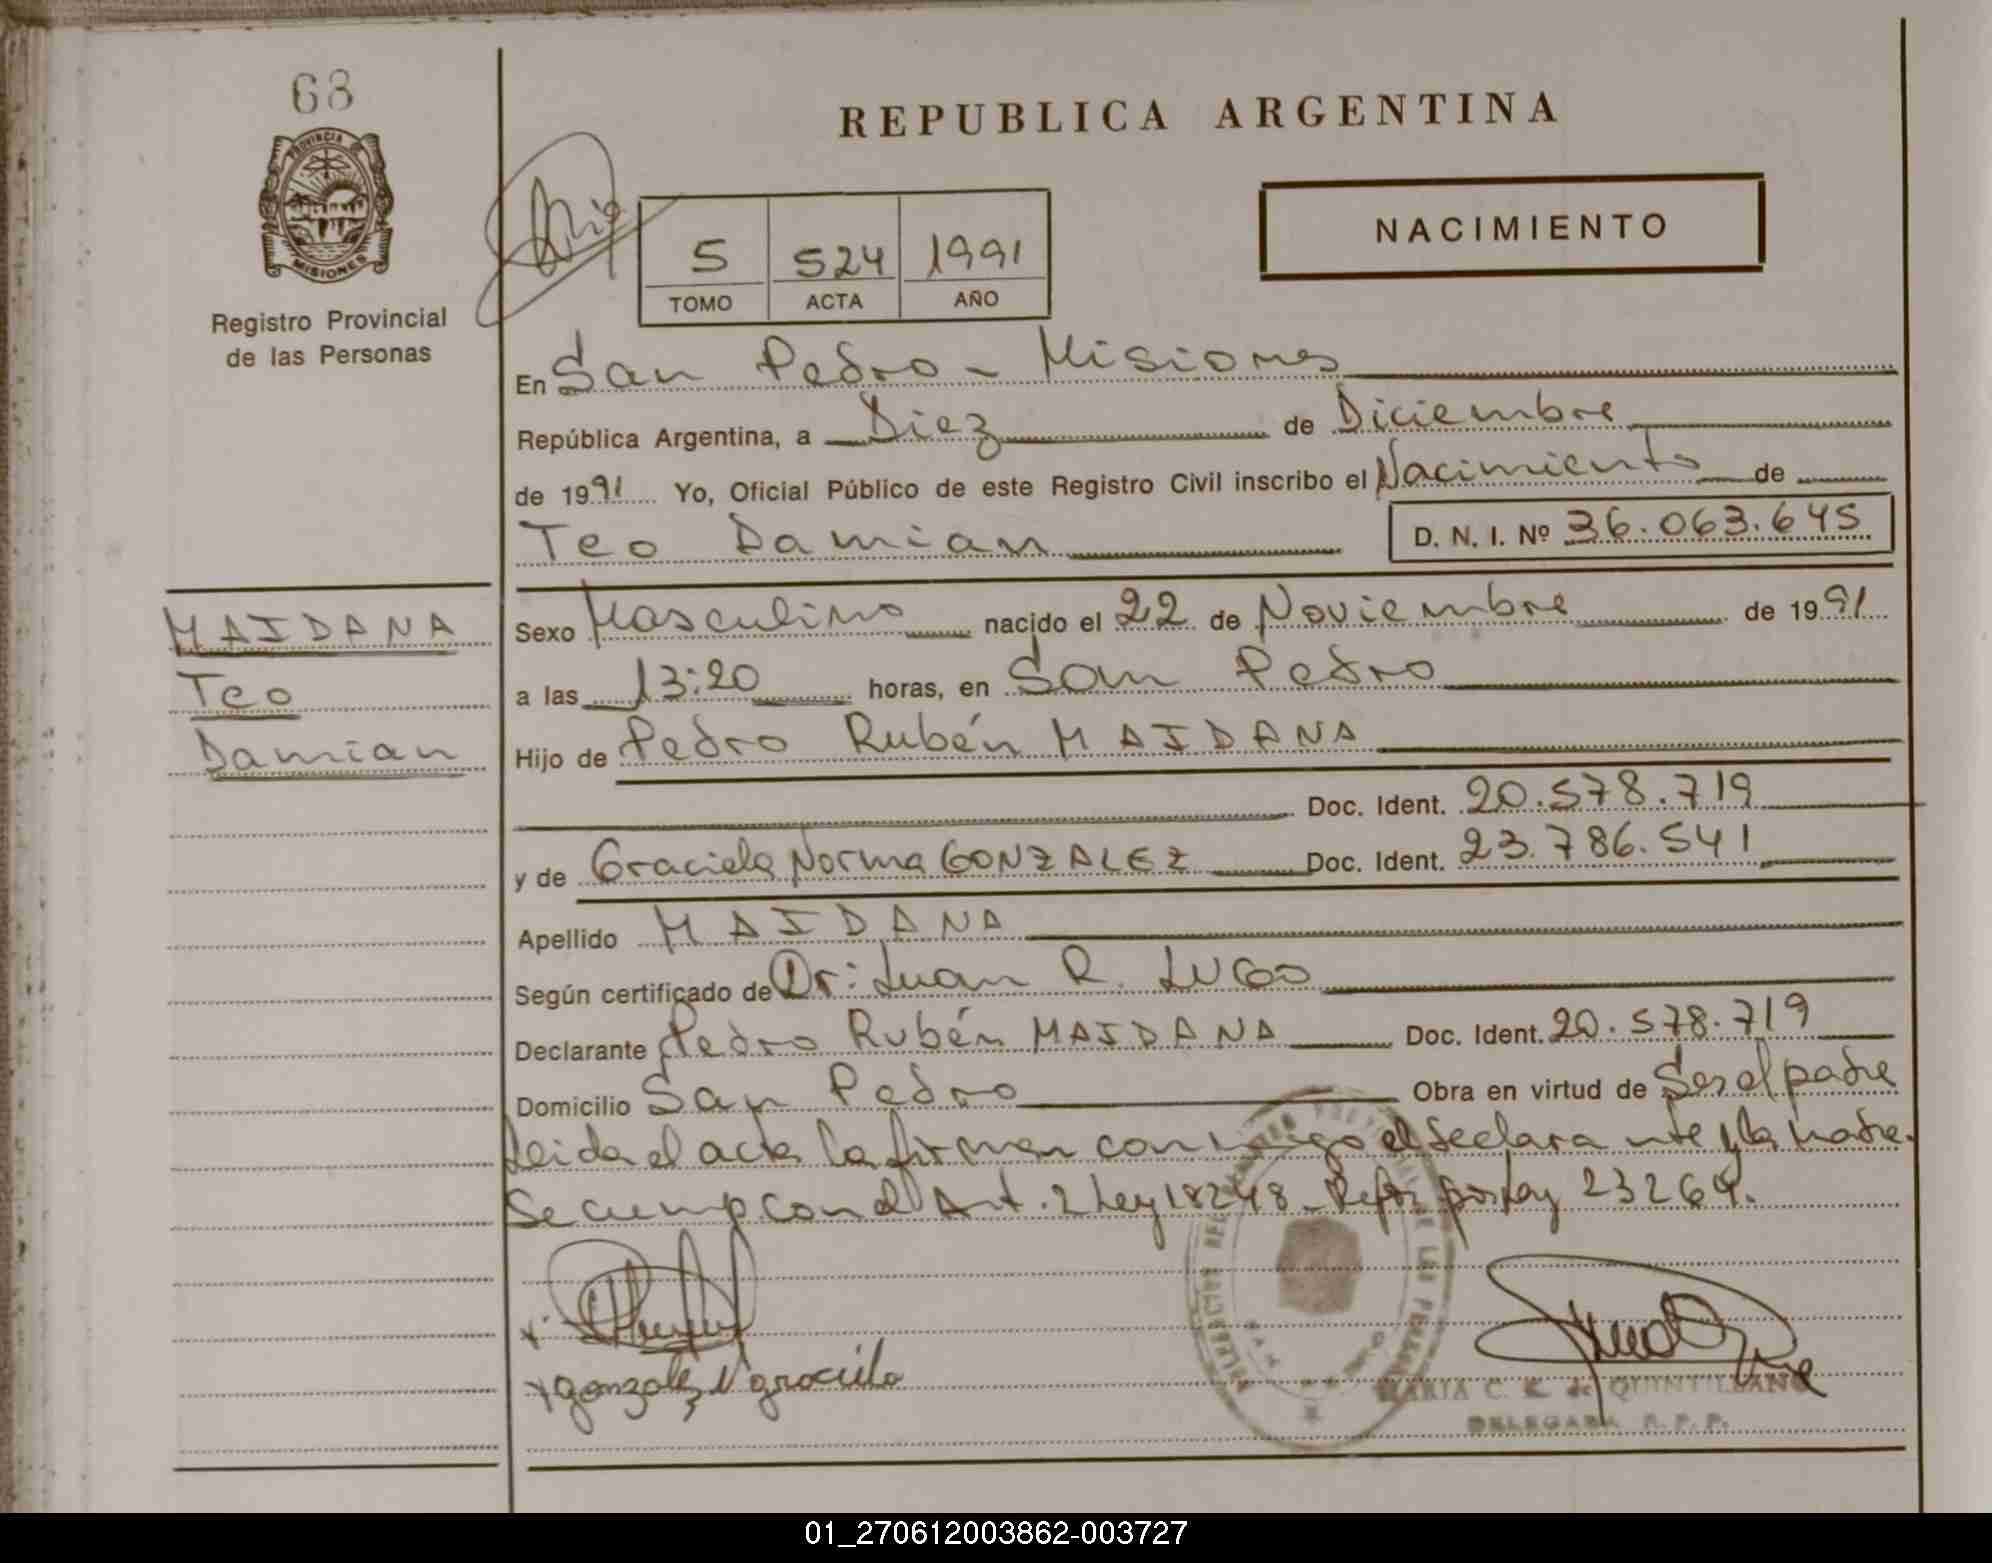 68
PROVINCIA DE
MISIONES
Registro Provincial
de las Personas
REPUBLICA ARGENTINA
NACIMIENTO
5 524 1991
TOMO ACTA AÑO
En San Pedro - Misiones
República Argentina, a Diez de Diciembre
de 1991 Yo, Oficial Público de este Registro Civil inscribo el Nacimiento de
Teo Damian D. N. I. Nº 36.063.645
MAIDANA
Teo
Damian
Sexo Masculino nacido el 22 de Noviembre de 1991
a las 13:20 horas, en San Pedro
Hijo de Pedro Rubén MAIDANA
Doc. Ident. 20.578.719
y de Graciela Norma GONZALEZ Doc. Ident. 23.786.541
Apellido MAIDANA
Según certificado de Dr: Juan R. LUGO
Declarante Pedro Rubén MAIDANA Doc. Ident. 20.578.719
Domicilio San Pedro Obra en virtud de Ser el padre
Leida el acta la firman conmigo el declarante y la madre.
Se cump con el Art. 2 Ley 18248 - Refor por Ley 23264.
x gonzalez N graciela
MARIA C. K. de QUINTILLANO
DELEGADA R. P. P.
01_270612003862-003727